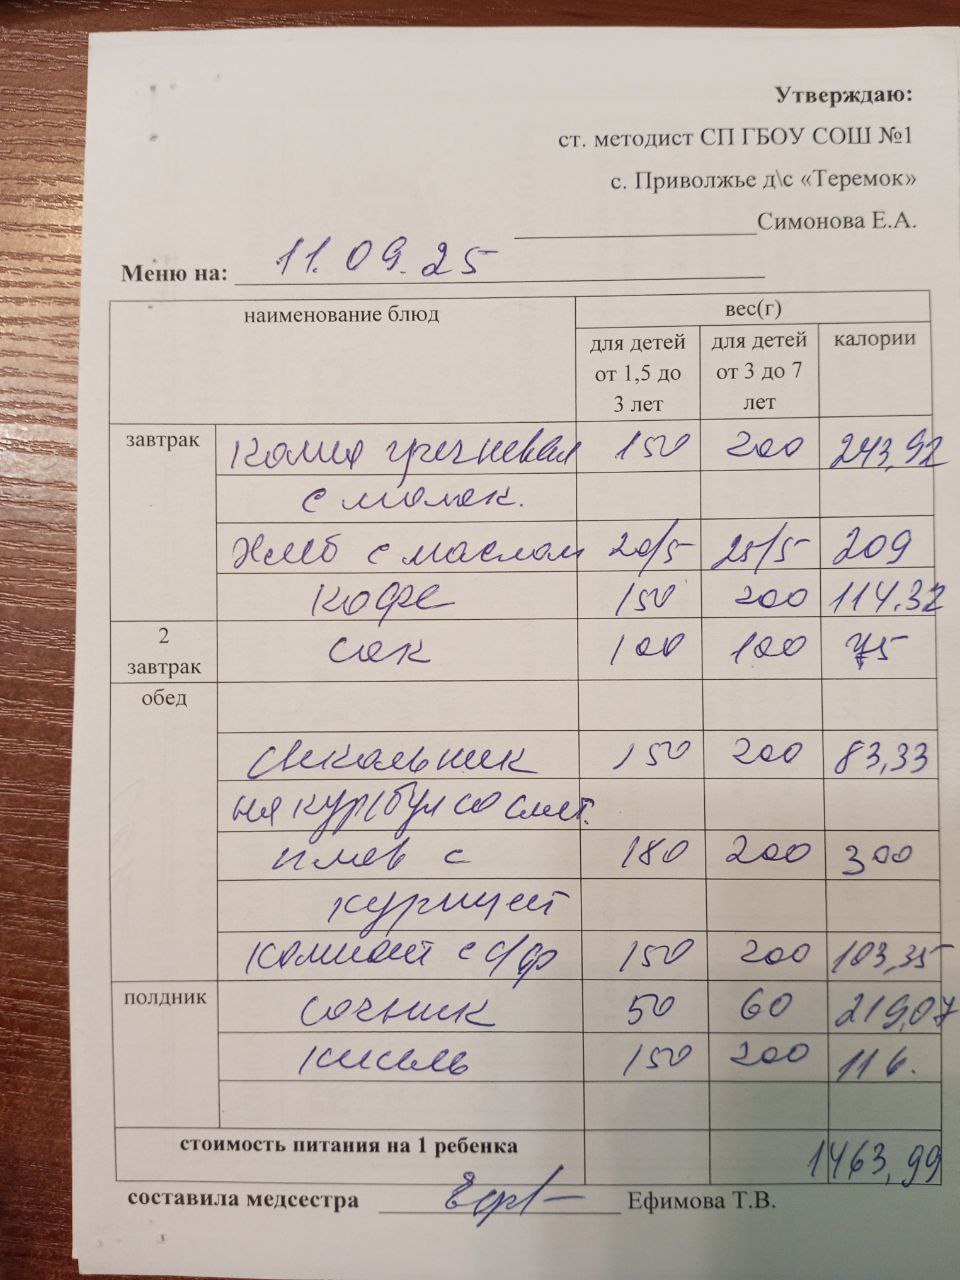 Утверждаю:
ст. методист СП ГБОУ СОШ №1
с. Приволжье д\с «Теремок»
Симонова Е.А.
Меню на: 11.09.25
наименование блюд вес(г)
для детей от 1,5 до 3 лет для детей от 3 до 7 лет калории
завтрак Каша гречневая 150 200 243,92
с молок.
Хлеб с маслом 20/5 25/5 209
кофе 150 200 114.32
2 завтрак сок 100 100 75
обед
Свекольник 150 200 83,33
на кур бул со смет.
плов с 180 200 300
курицей
компот с с/фр 150 200 103,35
полдник сочник 50 60 219,07
кисель 150 200 116.
стоимость питания на 1 ребенка 1463,99
составила медсестра Ефимова Т.В.